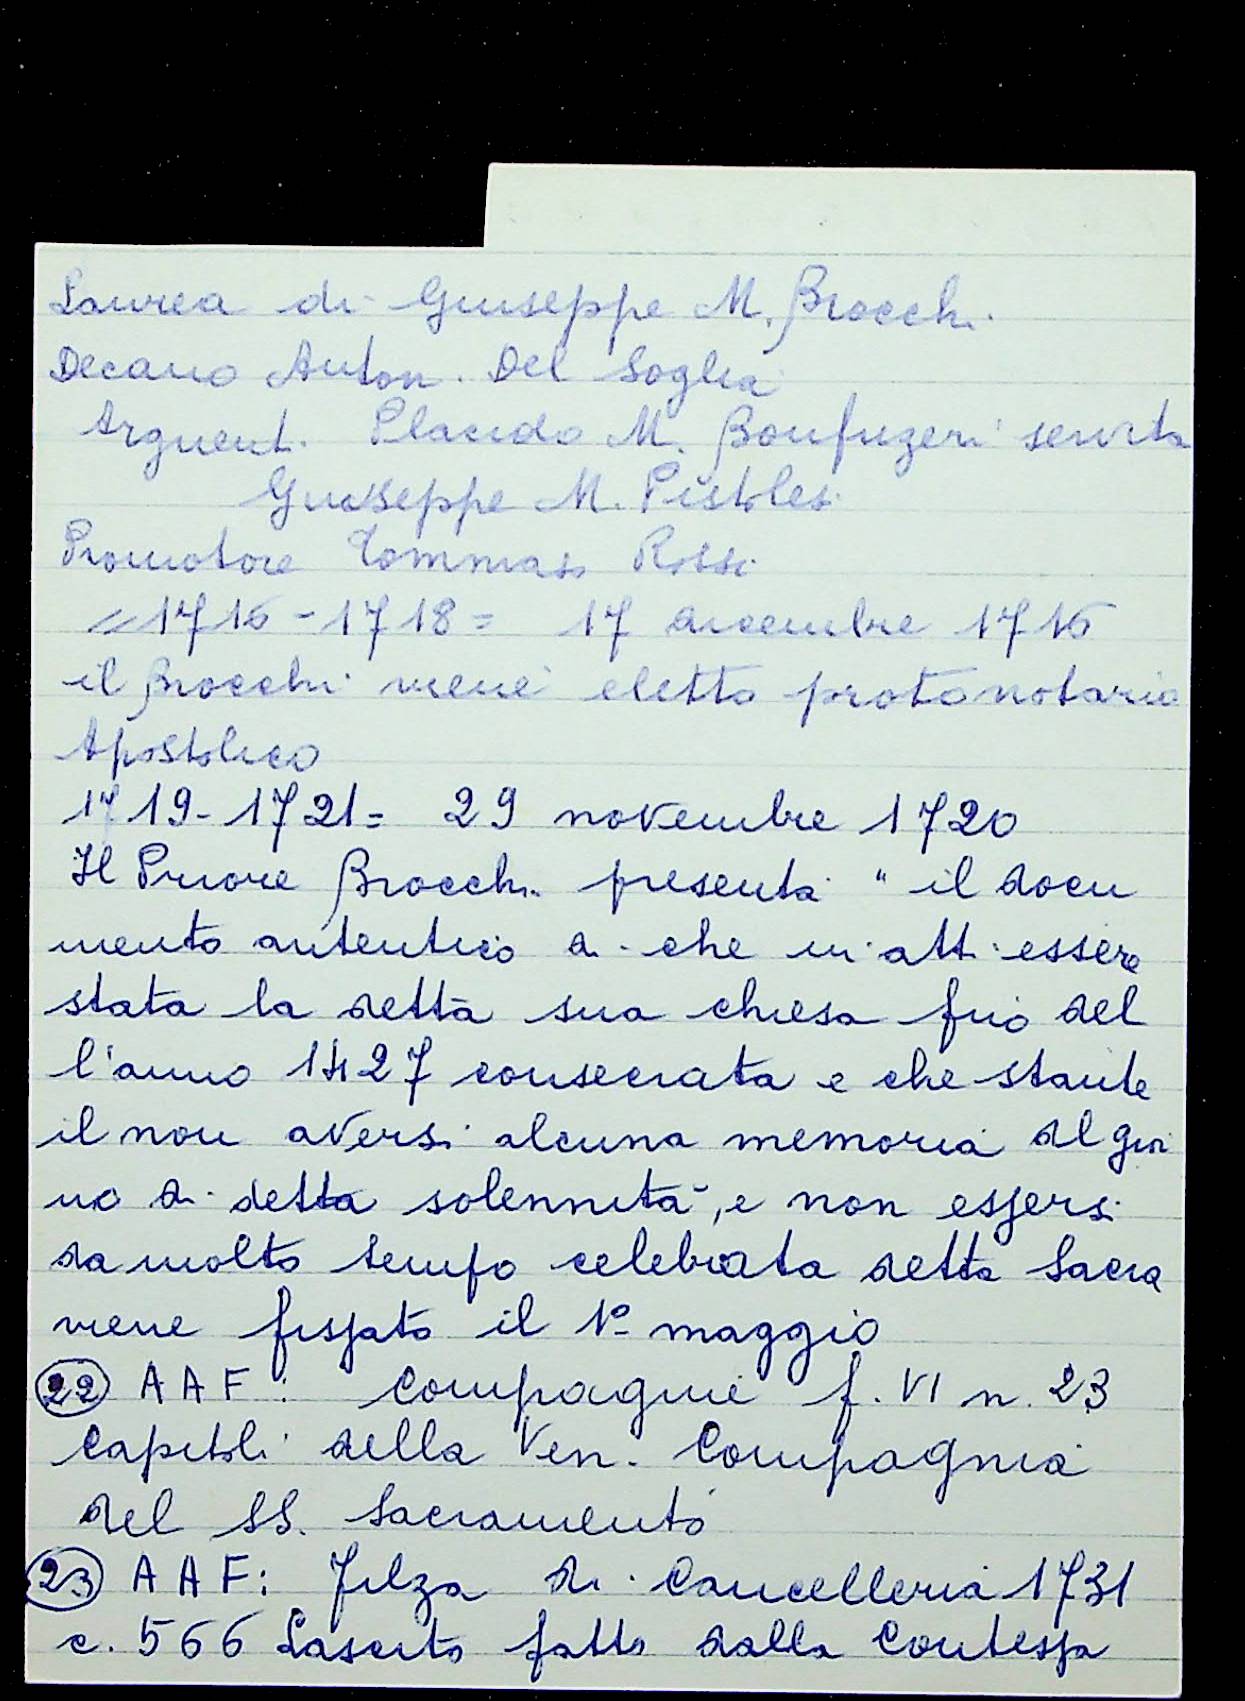 Laurea di Giuseppe M. Brocchi
Decano Anton. Del Soglia
Arguent. Placido M. Bonfrizeri servita
Giuseppe M. Pistolesi
Promotore Tommaso Rossi
= 1716 - 1718 = 17 dicembre 1716
il Brocchi viene eletto protonotario
Apostolico
1719 - 1721 = 29 novembre 1720
Il Priore Brocchi presenta " il docu
mento autentico di che in atti essere
stata la detta sua chiesa fino del
l'anno 1427 consecrata e che stante
il non aversi alcuna memoria del gior
no di detta solennità, e non essersi
da molto tempo celebrata detta Sacra
viene fissato il 1º maggio
22 A A F : Compagnie f. VI n. 23
Capitoli della Ven. Compagnia
del SS. Sacramento
23 A A F : Filza di Cancelleria 1731
c. 566 Lascito fatto dalla Contessa